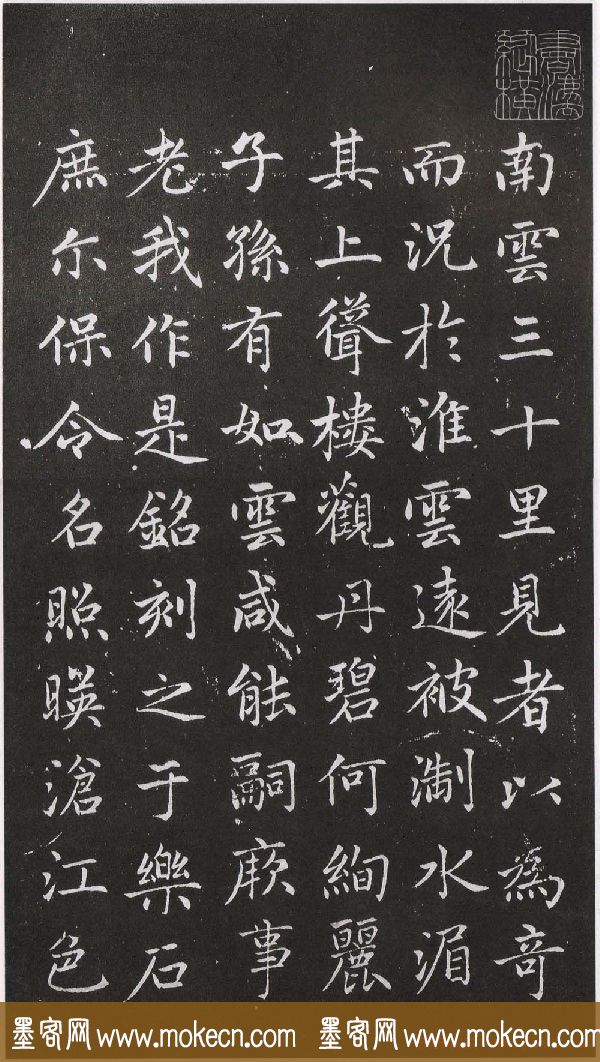 南雲三十里見者以為奇
而況於淮雲遠被淛水湄
其上聳樓觀丹碧何絢麗
子孫有如雲咸能嗣厥事
老我作是銘刻之于樂石
庶尒保令名照暎滄江色
墨客网 www.mokecn.com 墨客网 www.mokecn.com